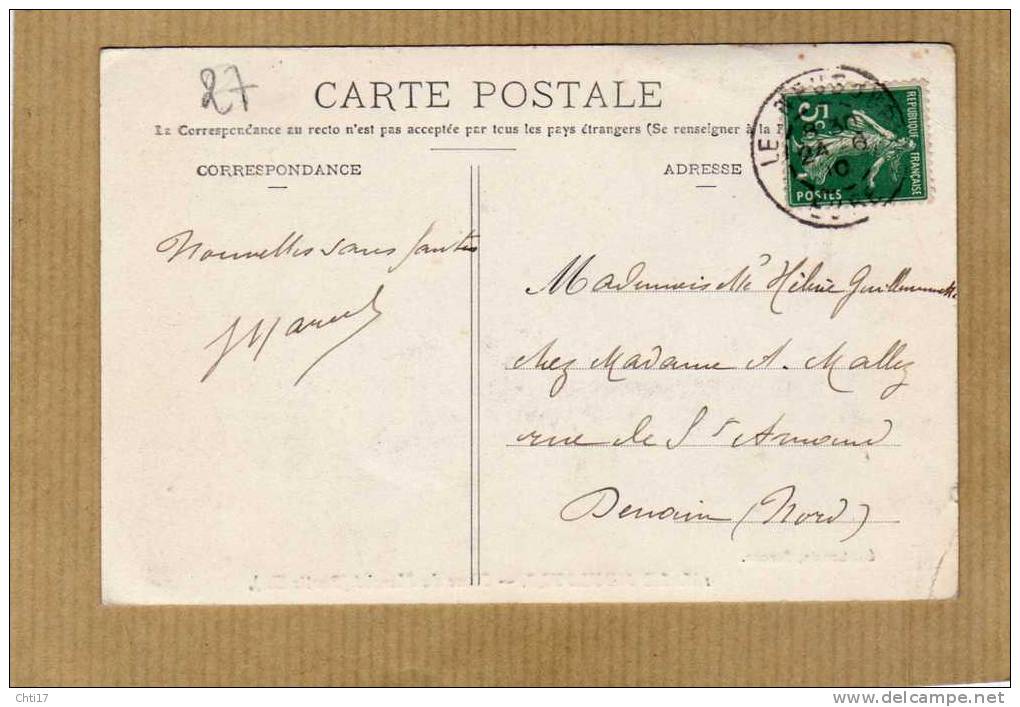 27
CARTE POSTALE
La Correspondance au recto n'est pas acceptée par tous les pays étrangers (Se renseigner à la
CORRESPONDANCE
ADRESSE
5c
REPUBLIQUE FRANÇAISE
POSTES
LE NEUB
8
24 6
10
Nouvelles sans fautes
Marcel
Mademoiselle Hélène Guillemette
chez Madame A. Mallez
rue de St Amand
Denain (Nord)
Chti17
www.delcampe.net